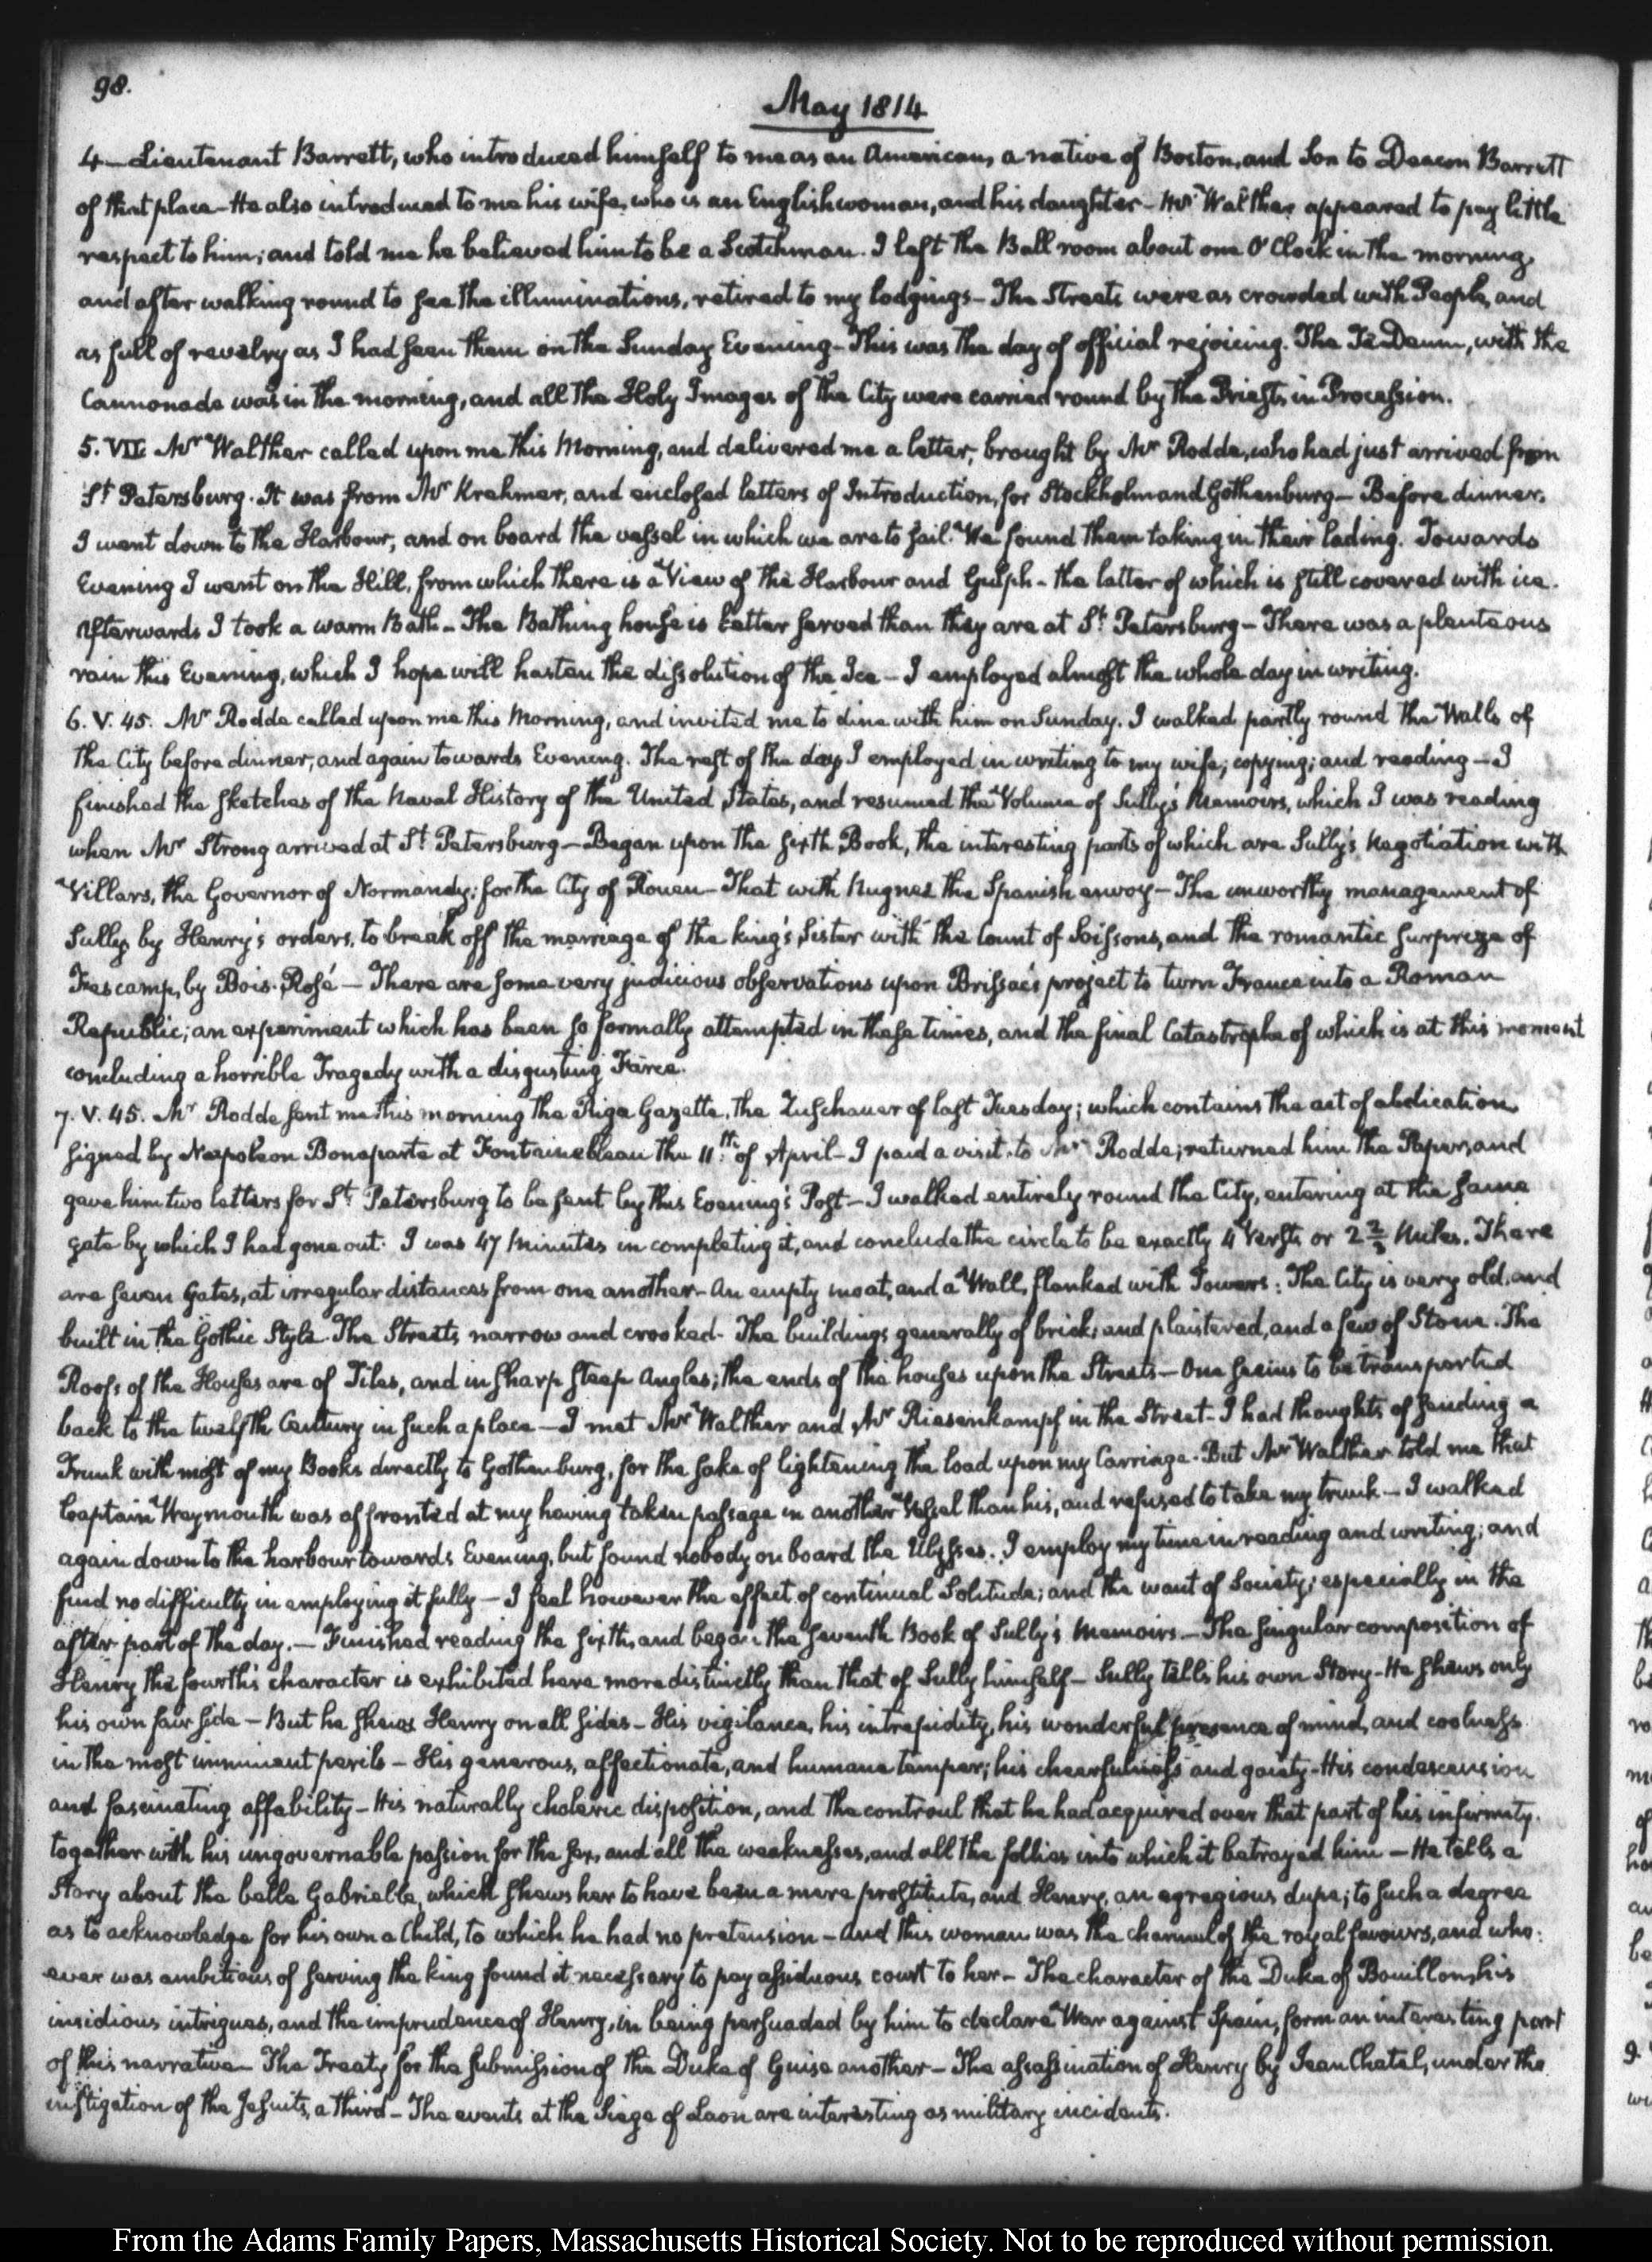 98.
May 1814
4— Lieutenant Barrett, who introduced himself to me as an American, a native of Boston, and Son to Deacon Barrett
of that place— He also introduced to me his wife, who is an Englishwoman, and his daughter— Mr Walther appeared to pay little
respect to him; and told me he believed him to be a Scotchman. I left the Ball room about one O'Clock in the morning,
and after walking round to see the illuminations, retired to my lodgings— The Streets were as crowded with People, and
as full of revelry as I had seen them on the Sunday Evening— This was the day of official rejoicing. The Te Deum, with the
Cannonade was in the morning, and all the Holy Images of the City were carried round by the Priests in Procession.
5. VII. Mr Walther called upon me this Morning, and delivered me a letter, brought by Mr Rodde, who had just arrived from
St Petersburg. It was from Mr Krehmer, and enclosed letters of Introduction, for Stockholm and Gothenburg— Before dinner,
I went down to the Harbour, and on board the vessel in which we are to sail. We found them taking in their lading. Towards
Evening I went on the Hill, from which there is a View of the Harbour and Gulph— the latter of which is still covered with ice.
Afterwards I took a warm Bath— The Bathing house is better served than they are at St Petersburg— There was a plenteous
rain this Evening, which I hope will hasten the dissolution of the Ice— I employed almost the whole day in writing.
6. V. 45. Mr Rodde called upon me this Morning, and invited me to dine with him on Sunday. I walked partly round the Walls of
the City before dinner, and again towards Evening. The rest of the day I employed in writing to my wife; copying; and reading— I
finished the sketches of the Naval History of the United States, and resumed the Volume of Sully's Memoirs, which I was reading
when Mr Strong arrived at St Petersburg— Began upon the sixth Book, the interesting parts of which are Sully's Negotiation with
Villars, the Governor of Normandy; for the City of Rouen— That with Nugnez the Spanish envoy— The unworthy management of
Sully, by Henry's orders, to break off the marriage of the king's Sister with the Count of Soissons, and the romantic surprize of
Fescamp, by Bois-Rosé— There are some very judicious observations upon Brissac's project to turn France into a Roman
Republic; an experiment which has been so formally attempted in these times, and the final Catastrophe of which is at this moment
concluding a horrible Tragedy with a disgusting Farce.
7. V. 45. Mr Rodde sent me this morning the Riga Gazette, the Zuschauer of last Tuesday; which contains the act of abdication,
signed by Napoleon Bonaparte at Fontainebleau the 11th of April— I paid a visit to Mr Rodde; returned him the Paper, and
gave him two letters for St Petersburg to be sent by this Evening's Post— I walked entirely round the City, entering at the same
gate by which I had gone out. I was 47 Minutes in completing it, and conclude the circle to be exactly 4 Versts or 2 2/3 Miles. There
are seven Gates, at irregular distances from one another— An empty moat, and a Wall, flanked with Towers: The City is very old, and
built in the Gothic Style— The Streets narrow and crooked— The buildings generally of brick, and plaistered, and a few of Stone. The
Roofs of the Houses are of Tiles, and in sharp steep Angles; the ends of the houses upon the Streets— One seems to be transported
back to the twelfth Century in such a place— I met Mr Walther and Mr Riesenkampf in the Street— I had thoughts of sending a
Trunk with most of my Books directly to Gothenburg, for the sake of lightening the load upon my Carriage. But Mr Walther told me that
Captain Weymouth was affronted at my having taken passage in another Vessel than his, and refused to take my trunk— I walked
again down to the harbour towards Evening, but found nobody on board the Ulysses. I employ my time in reading and writing; and
find no difficulty in employing it fully— I feel however the effect of continual Solitude; and the want of Society; especially in the
after part of the day.— Finished reading the sixth, and began the seventh Book of Sully's Memoirs.— The singular composition of
Henry the fourth's character is exhibited here more distinctly than that of Sully himself— Sully tells his own Story— He shews only
his own fair side— But he shews Henry on all sides— His vigilance, his intrepidity, his wonderful presence of mind, and coolness
in the most imminent perils— His generous, affectionate, and humane temper; his cheerfulness and gaiety— His condescension
and fascinating affability— His naturally choleric disposition, and the controul that he had acquired over that part of his infirmity.
together with his ungovernable passion for the sex, and all the weaknesses, and all the follies into which it betrayed him— He tells a
Story about the belle Gabrielle, which shews her to have been a mere prostitute, and Henry, an egregious dupe; to such a degree
as to acknowledge for his own a Child, to which he had no pretension— And this woman was the channel of the royal favours, and who-
ever was ambitious of serving the king found it necessary to pay assiduous court to her— The character of the Duke of Bouillon, his
insidious intrigues, and the imprudence of Henry, in being persuaded by him to declare War against Spain, form an interesting part
of this narrative— The Treaty for the submission of the Duke of Guise another— The assassination of Henry by Jean Chatel, under the
instigation of the Jesuits, a third— The events at the Siege of Laon are interesting as military incidents.
From the Adams Family Papers, Massachusetts Historical Society. Not to be reproduced without permission.